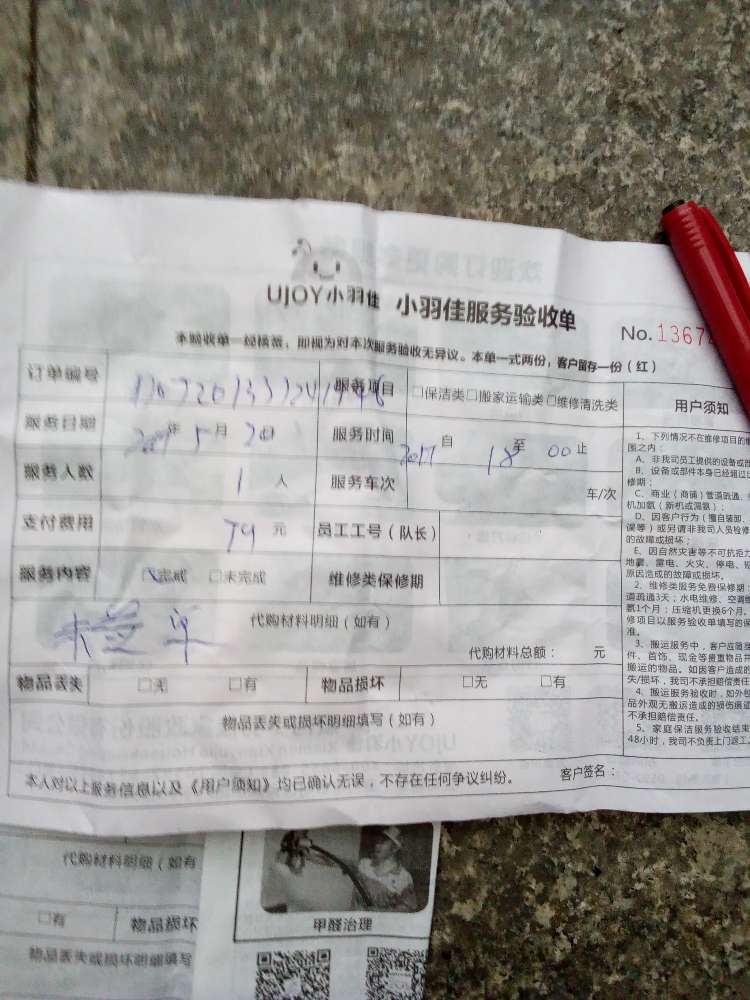 UJOY小羽佳 小羽佳服务验收单
No.1367
本验收单一经核签，即视为对本次服务验收无异议。本单一式两份，客户留存一份（红）
订单编号 服务项目 □保洁类□搬家运输类□维修清洗类 用户须知
服务日期 年 5 月 日 服务时间 自 至 18 00 止
服务人数 1 人 服务车次 车/次
支付费用 79 元 员工工号（队长）
服务内容 完成 □未完成 维修类保修期
未签单 代购材料明细（如有）
代购材料总额： 元
物品丢失 □无 □有 物品损坏 □无 □有
物品丢失或损坏明细填写（如有）
本人对以上服务信息以及《用户须知》均已确认无误，不存在任何争议纠纷。 客户签名：
1、下列情况不在维修项目的
围之内：
A、非我司员工提供的设备或
B、设备或部件本身已经超过
修期；
C、商业（商铺）管道疏通、
机加氨（新机或漏氨）；
D、因客户行为（擅自装卸、
误等）或另请非我司人员检修
的故障或损坏；
E、因自然灾害等不可抗拒力
地震、雷电、火灾、停电、
原因造成的故障或损坏。
2、维修类服务免费保修期：
道疏通3天；水电维修、空调
氨1个月；压缩机更换6个月。
修项目以服务验收单填写的保
准。
3、搬运服务中，客户应随身
件、首饰、现金等贵重物品
搬运的物品。如因客户造成的
失/损坏，我司不承担赔偿责任
4、搬运服务验收时，如外包
品外观无搬运造成的损伤痕迹
不承担赔偿责任。
5、家庭保洁服务验收结束
48小时，我司不负责上门返工
代购材料明细（如有
□有 物品损坏
物品丢失或损坏明细填写
甲醛治理